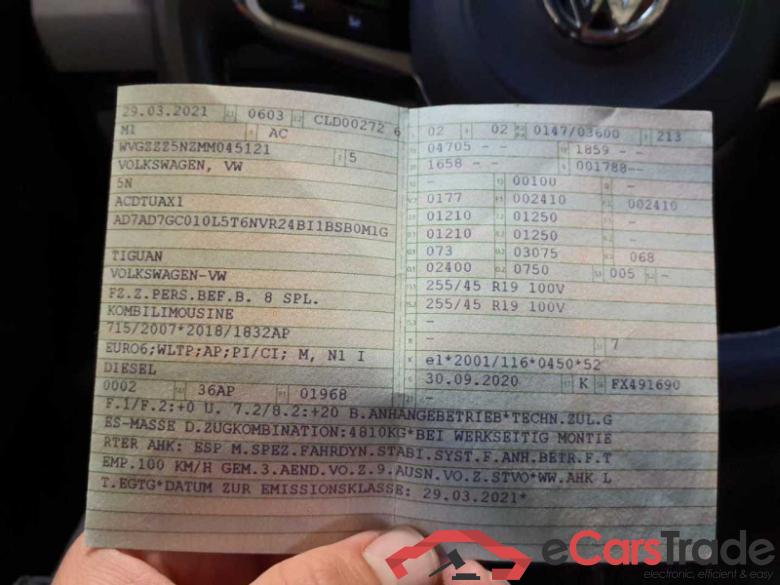 29.03.2021 0603 CLD00272 6
M1 AC
WVGZZZ5NZMM045121 5
VOLKSWAGEN, VW
5N
ACDTUAX1
AD7AD7GC010L5T6NVR24BI1BSB0M1G
TIGUAN
VOLKSWAGEN-VW
FZ.Z.PERS.BEF.B. 8 SPL.
KOMBILIMOUSINE
715/2007*2018/1832AP
EURO6;WLTP;AP;PI/CI; M, N1 I
DIESEL
0002 36AP 01968
02 02 0147/03600 213
04705 - - 1859 - -
1658 - - 001788--
- 00100 -
0177 002410 002410
01210 01250 -
01210 01250 -
073 03075 068
02400 0750 005 -
255/45 R19 100V
255/45 R19 100V
-
- 7
e1*2001/116*0450*52
30.09.2020 K FX491690
-
F.1/F.2:+0 U. 7.2/8.2:+20 B.ANHANGEBETRIEB*TECHN.ZUL.G
ES-MASSE D.ZUGKOMBINATION:4810KG*BEI WERKSEITIG MONTIE
RTER AHK: ESP M.SPEZ.FAHRDYN.STABI.SYST.F.ANH.BETR.F.T
EMP.100 KM/H GEM.3.AEND.VO.Z.9.AUSN.VO.Z.STVO*WW.AHK L
T.EGTG*DATUM ZUR EMISSIONSKLASSE: 29.03.2021*
eCarsTrade
electronic, efficient & easy